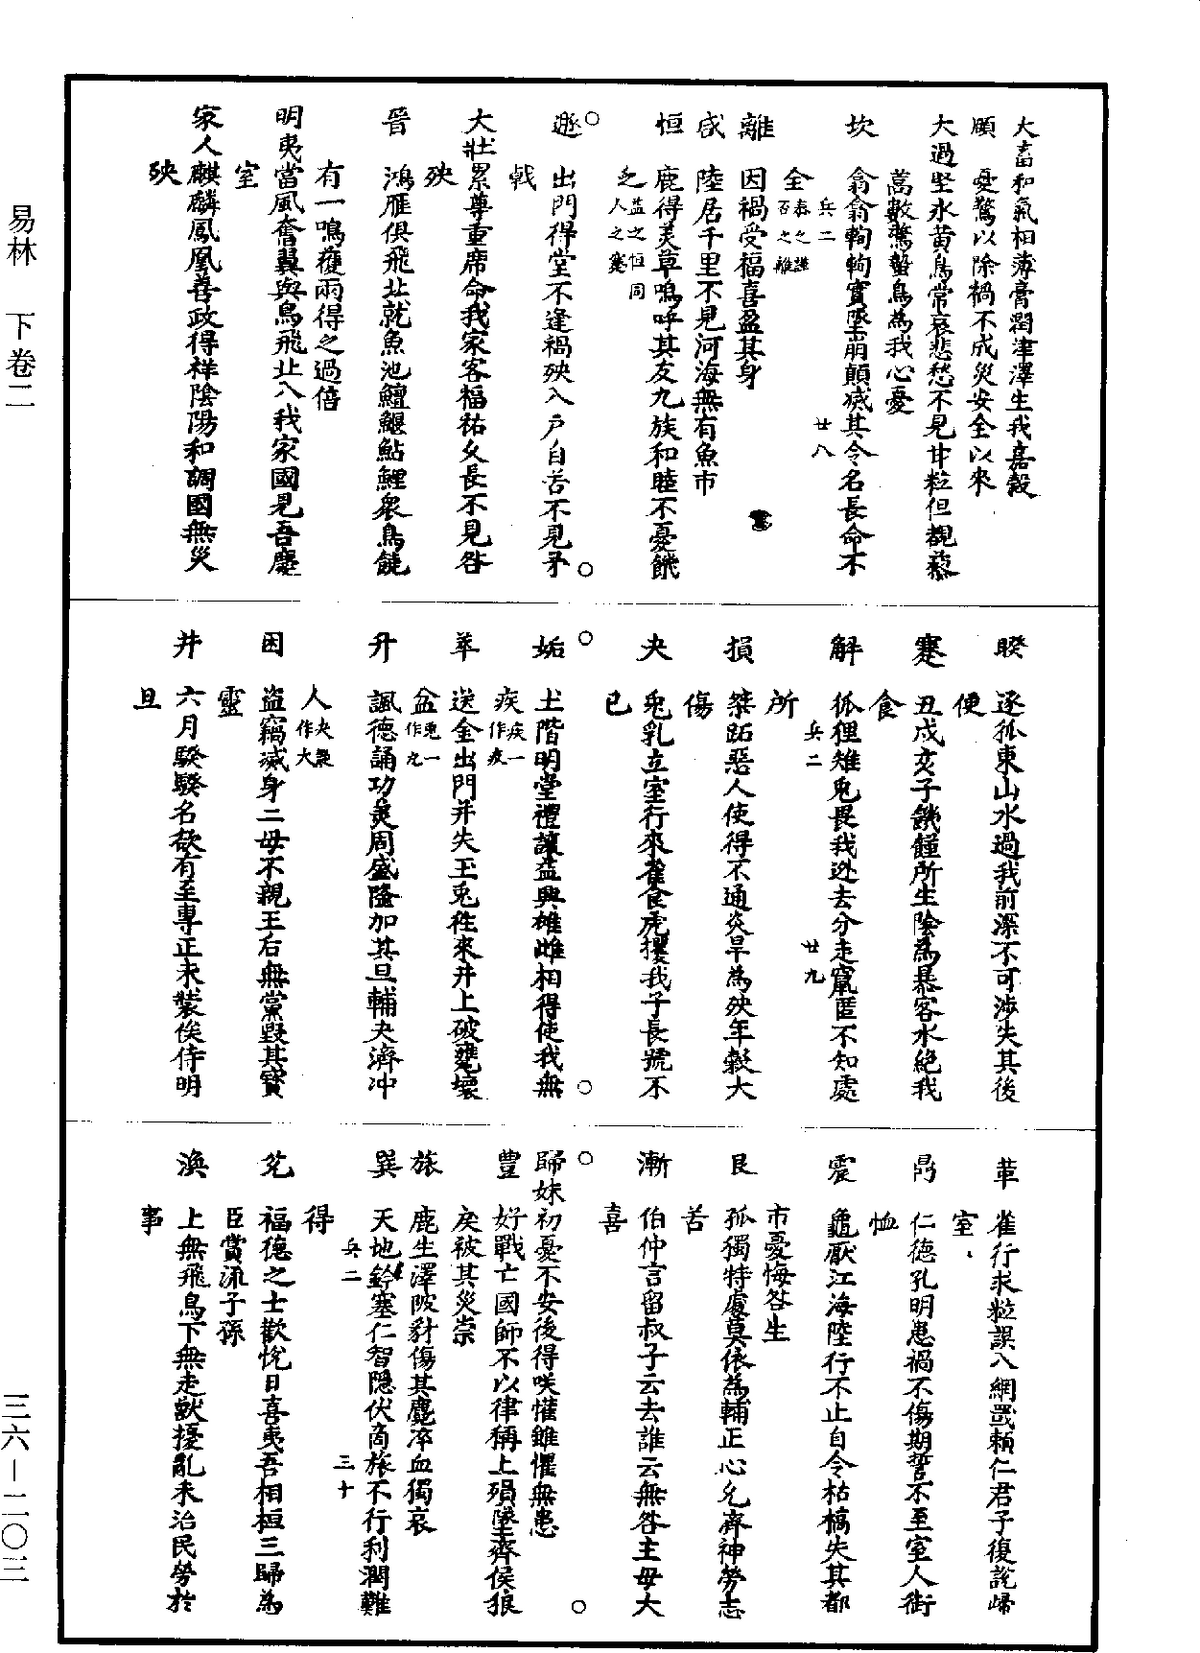 大畜和氣相薄膏潤津澤生我嘉穀
頤　憂驚以除禍不成災安全以來
大過坐永黃鳥常哀悲愁不見甘粒但覩藜
蒿數驚鷙鳥為我心憂
兵二　廿八
坎　翕翕軥軥實墜崩顛滅其令名長命不
全泰之謙否之離
離　因禍受福喜盈其身
咸　陸居千里不見河海無有魚市
恒　鹿得美草鳴呼其友九族和睦不憂飢
乏益之恒同人之蹇
遯　出門得堂不逢禍殃入戶自苦不見矛
戟
大壯累尊重席命我家客福祐久長不見咎
殃
晉　鴻雁俱飛北就魚池鱣鰋鮎鯉衆鳥饒
有一鳴獲兩得之過倍
明夷當風奮翼與鳥飛北入我家國見吾慶
室
家人麒麟鳳凰善政得祥陰陽和調國無災
殃
睽　逐狐東山水過我前深不可涉失其後
便
蹇　丑戌亥子饑饉所生陰為暴客水絕我
食
兵二　廿九
解　狐狸雉兔畏我逃去分走竄匿不知處
所
損　桀跖惡人使得不通炎旱為殃年穀大
傷
夬　兔乳立室行來雀食虎攫我子長號不
已
姤　土階明堂禮讓益興雄雌相得使我無
疾疾一作疚
萃　送金出門并失玉兔往來井上破甕壞
盆兔一作九
升　諷德誦功美周盛隆加其旦輔夬濟沖
人夬疑作大
困　盜竊滅身二母不親王后無黨毀其寶
靈
井　六月騤騤名欲有至專正未裝俟待明
旦
革　雀行求粒誤入網罭賴仁君子復說歸
室
鼎　仁德孔明患禍不傷期誓不至室人銜
恤
震　龜厭江海陸行不止自令枯槁失其都
市憂悔咎生
艮　孤獨特處莫依為輔正心允齊神勞志
苦
漸　伯仲言留叔子云去誰云無咎主母大
喜
歸妹初憂不安後得咲懽雖懼無患
豐　好戰亡國師不以律稱上殞墜齊侯狼
戾被其災祟
旅　鹿生澤陂豺傷其麑淬血獨哀
兵二　三十
巽　天地鈐塞仁智隱伏商旅不行利潤難
得
兌　福德之士歡悅日喜夷吾相桓三歸為
臣賞流子孫
渙　上無飛鳥下無走獸擾亂未治民勞於
事
易林　下卷二
三六－二〇三